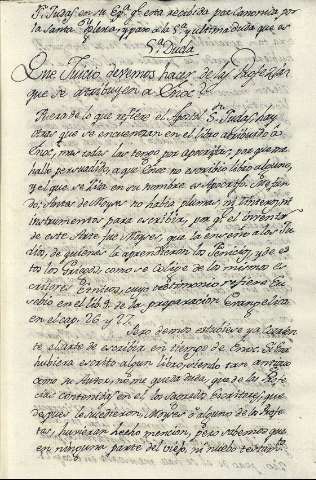 Sn. Judas en su Epª. qe. està recibida por Canonica por
la Santa Iglesia, y paso a la 5ª. y ultima duda que es
5ª. Duda.
Que Juicio devemos hacer de las Profesias
que se atribuyen a Enoc?
Fuera de lo que refiere el Apostol Sn. Judas, hay
otras que se encuentran en el libro atribuido à
Enoc, mas todas las tengo por Apocrifas, por que me
hallo persuadido, a que Enoc no escribio libro alguno,
y el que se cita en su nombre es Apocrifo. Me fun-
do: Antes de Moyses no habia plumas, ni tinteros, ni
instrumentos para escribir, por qe. el inventor
de este Arte fue Moyses, que la enseño a los Ju-
dios, de quienes la aprendieron los Fenicios, y de es-
tos los Griegos como se colije de los mismos es-
critores Etnicos, cuyo testimonio refiere Eu-
sebio en el lib. 9. de la preparacion Evangelica
en el cap. 26. y 27.
Pero demos estuviese ya corien-
te el arte de escribir en tiempo de Enoc. Si Enoc
hubiera escrito algun libro, siendo tan antiguo
como su Autor, no me queda duda, que de las Profe-
cias contenidas en el los sacros Escritores, que
despues le sucedieron, Moyses ò alguno de los Profe-
tas, huvieran hecho mencion, pero sabemos que
en ninguna parte del viejo, ni nuevo testamto.